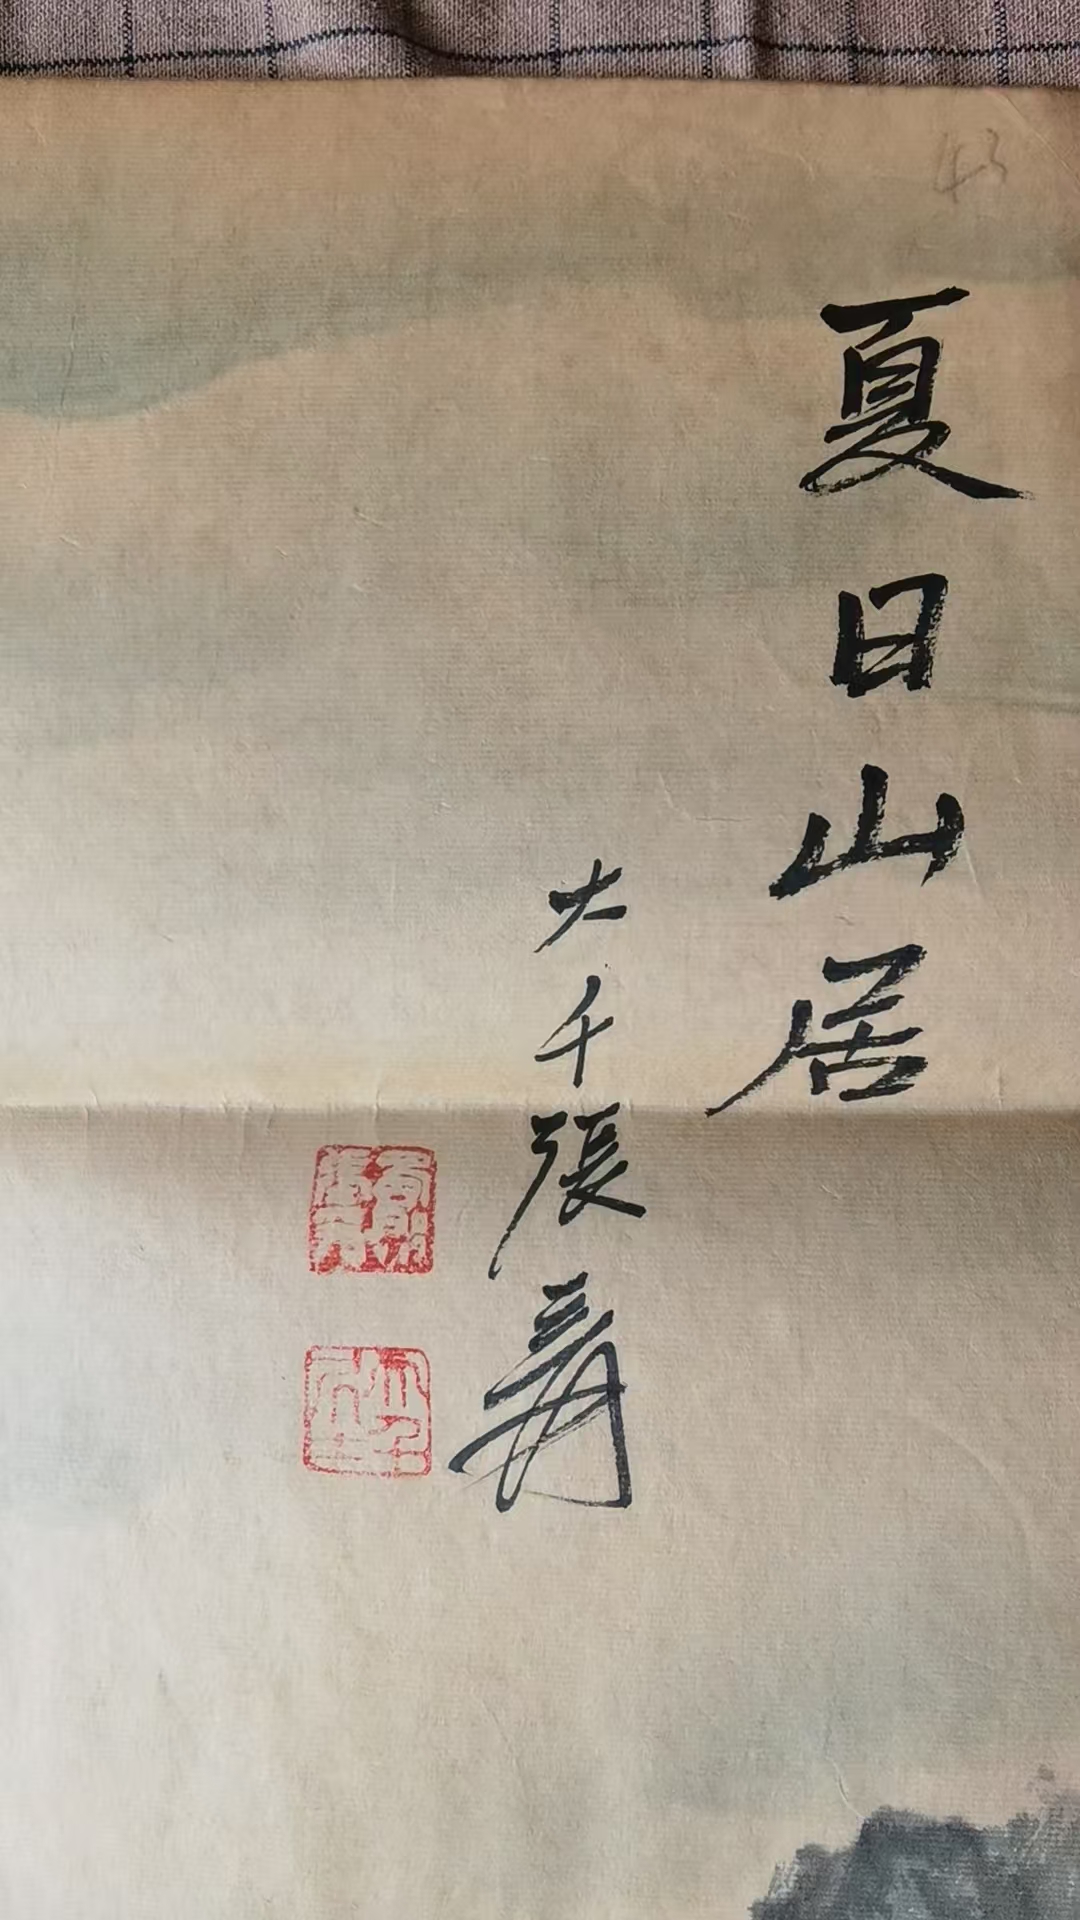 43
夏日山居
大千張爰